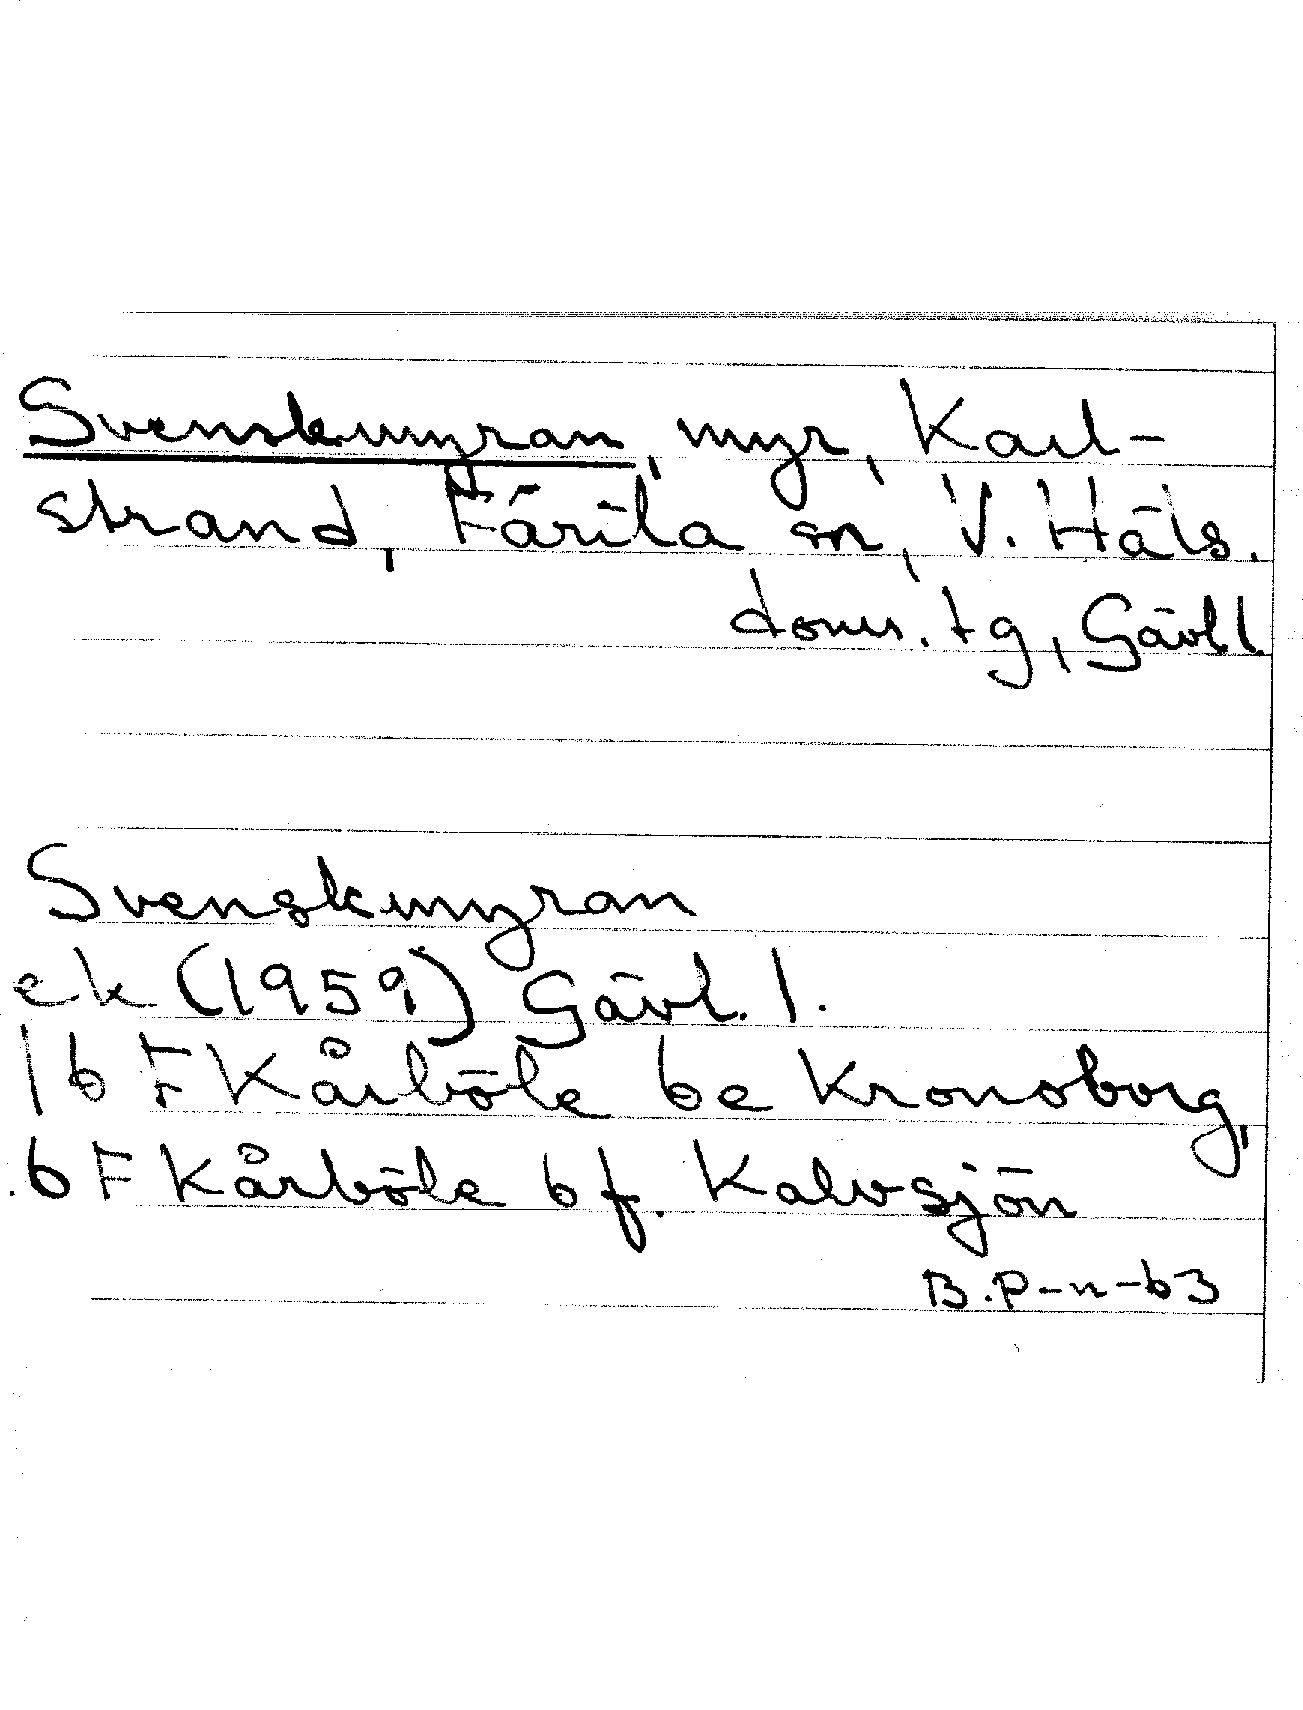 Svenskmyran, myr, Karl-
strand, Färila sn, V. Häls.
doms. tg, Gävl. l
Svenskmyran
ek (1959) Gävl. l.
16 F Kårböle 6e Kronoborg,
16 F Kårböle 6f. Kalvsjön
B.P-n-63